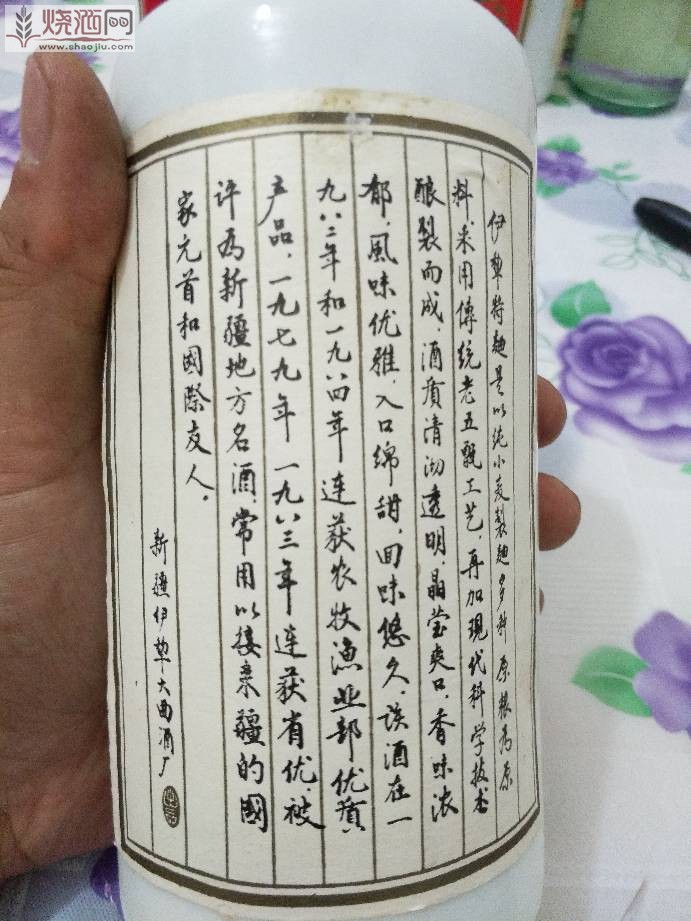 烧酒网
www.shaojiu.com
伊犂特麯是以纯小麦製麯多种原粮为原
料，采用傳统老五甑工艺，再加现代科学技术
酿製而成，酒质清沏透明，晶莹爽口，香味浓
郁，风味优雅，入口绵甜，回味悠久，该酒在一
九八二年和一九八四年连获农牧渔业部优质
产品，一九七九年一九八三年连获省优，被
许为新疆地方名酒，常用以接来疆的國
家元首和國際友人。
新疆伊犂大曲酒厂